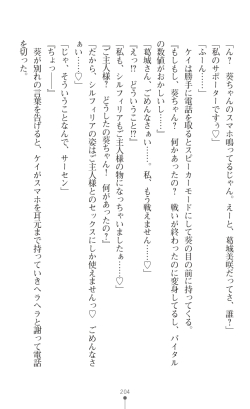 「ん？　葵ちゃんのスマホ鳴ってるじゃん。えーと、葛城美咲だってさ、誰？」
「私のサポーターですぅ♡」
「ふーん……」
　ケイは勝手に電話を取るとスピーカーモードにして葵の目の前に持っていく。
「もしもし、葵ちゃん？　何かあったの？　戦いが終わったのに変身してるし、バイタル
の数値がおかしい……」
「葛城さん、ごめんなさぁい……。私、もう戦えません……♡」
「えっ!?　どういうこと!?」
「私も、シルフィリアもご主人様の物になっちゃいましたぁ……♡」
「ご主人様？　どうしたの葵ちゃん！　何があったの!?」
「だから、シルフィリアの姿はご主人様とのセックスにしか使えませんっ♡　ごめんなさ
ぁい……♡」
「じゃ、そういうことなんで、サーセン」
「ちょっ――」
　葵が別れの言葉を告げると、ケイがスマホを耳元まで持っていきヘラヘラと謝って電話
を切った。
204